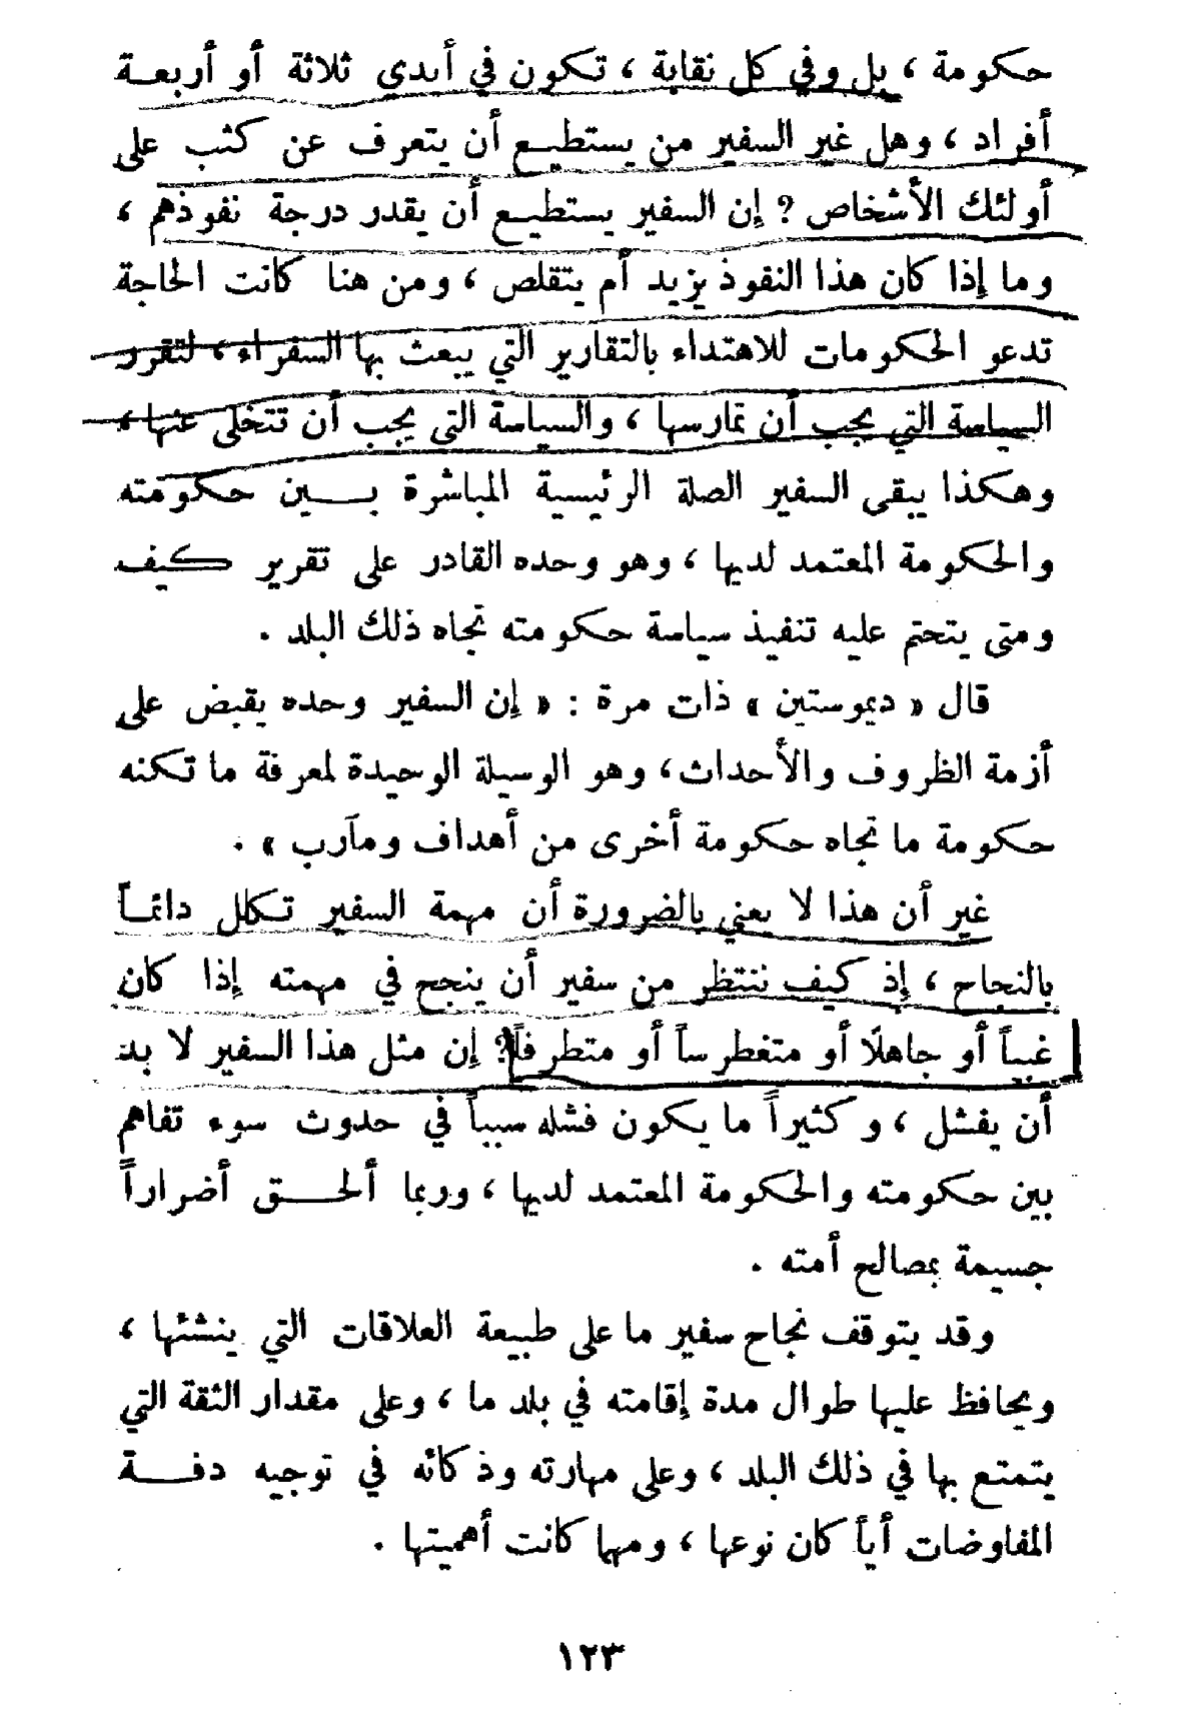 حكومة ، بل وفي كل نقابة ، تكون في أيدي ثلاثة أو أربعة
أفراد ، وهل غير السفير من يستطيع أن يتعرف عن كثب على
أولئك الأشخاص ؟ إن السفير يستطيع أن يقدر درجة نفوذهم ،
وما إذا كان هذا النفوذ يزيد أم يتقلص ، ومن هنا كانت الحاجة
تدعو الحكومات للاهتداء بالتقارير التي يبعث بها السفراء ، لتقرر
السياسة التي يجب أن تمارسها ، والسياسة التي يجب أن تتخلى عنها ،
وهكذا يبقى السفير الصلة الرئيسية المباشرة بين حكومته
والحكومة المعتمد لديها ، وهو وحده القادر على تقرير كيف
ومتى يتحتم عليه تنفيذ سياسة حكومته تجاه ذلك البلد .
قال « ديموستين » ذات مرة : « إن السفير وحده يقبض على
أزمة الظروف والأحداث ، وهو الوسيلة الوحيدة لمعرفة ما تكنه
حكومة ما تجاه حكومة أخرى من أهداف ومآرب » .
غير أن هذا لا يعني بالضرورة أن مهمة السفير تكلل دائماً
بالنجاح ، إذ كيف ننتظر من سفير أن ينجح في مهمته إذا كان
غبياً أو جاهلًا أو متغطرساً أو متطرفاً؟ إن مثل هذا السفير لا بد
أن يفشل ، وكثيراً ما يكون فشله سبباً في حدوث سوء تفاهم
بين حكومته والحكومة المعتمد لديها ، وربما ألحق أضراراً
جسيمة بمصالح أمته .
وقد يتوقف نجاح سفير ما على طبيعة العلاقات التي ينشئها ،
ويحافظ عليها طوال مدة إقامته في بلد ما ، وعلى مقدار الثقة التي
يتمتع بها في ذلك البلد ، وعلى مهارته وذكائه في توجيه دفة
المفاوضات أياً كان نوعها ، ومهما كانت أهميتها .
١٢٣